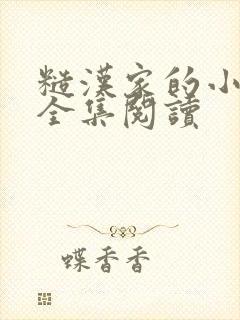 糙漢家的小
全集閱讀
蝶香香